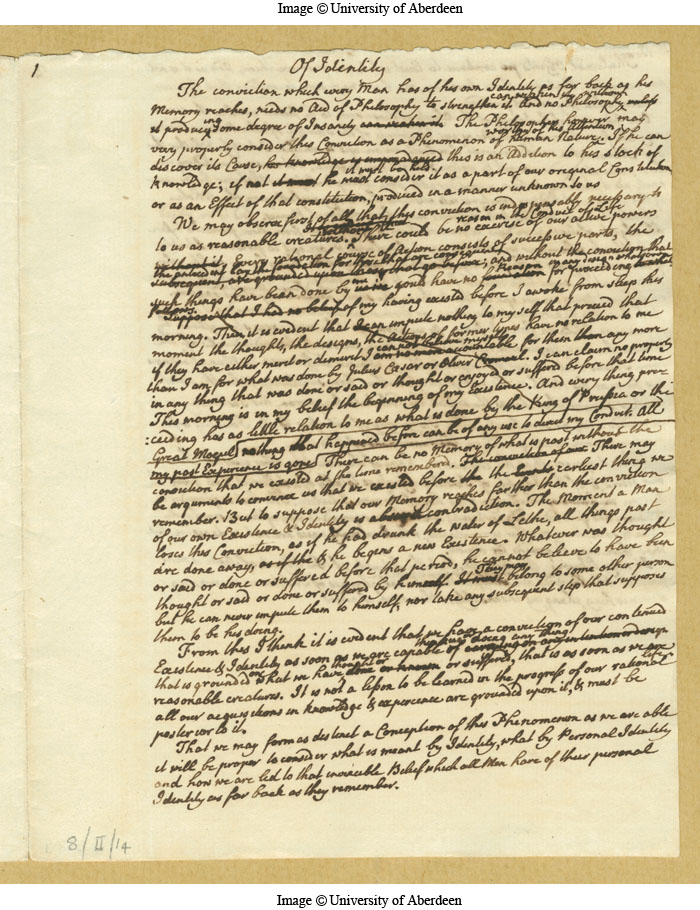 Image © University of Aberdeen
1
Of Identity
The conviction which every Man has of his own Identity as far back as his
can weaken it, without
Memory reaches, needs no Aid of Philosophy to strengthen it And no Philosophy unless
it produceing some degree of Insanity can weaken it. The Philosopher however may
worthy of his Attention
very properly consider this Conviction as a Phenomenon of human Nature. If he can
discover its Cause, her knowledge is this is an Addition to his stock of
it must be held
knowledge; if not it must he must consider it as a part of our original Constitution
or as an Effect of that constitution, produced in a manner unknown to us
We may observe first of all that this conviction is indispensably necessary to
without this reason in the Conduct of Life
to us as reasonable creatures. There could be no exercise of our active powers
without it, Every rational course of Action consists of successive parts, the
subsequent, are grounded upon and without the conviction that
such things have been done by me I could have no Reason for proceeding
Suppose that I had no belief of my having existed before I awoke from sleep this
morning. Then it is evident that I can impute nothing to myself that preceded that
moment the thoughts, the designs, the actions of former types have no relation to me
cannot believe myself
if they have either merit or demerit I am no more accountable for them than any more
than I am for what was done by Julius Cæsar or Oliver Cromwel. I can claim no property
in any thing that was done or said or thought or enjoyed or sufferd before that time
This morning is in my belief the beginning of my Existence. And every thing pre-
:ceeding has as little relation to me as what is done by the King of Prussia or the
Great Mogul nothing that happened before can be of any use to direct my Conduct. All
my past Experience is gone There can be no Memory of what is past without the
conviction that we existed at the time rememberd. The conviction There may
be arguments to convince us that we existed before the the earliest thing we
remember. But to suppose that our Memory reaches farther than the conviction
of our own Existence & Identity is absurd contradiction. The Moment a Man
loses this Conviction, as if he had drunk the water of Lethe, all things past
are done away, as if the & he begins a new Existence. Whatever was thought
or said or done or suffered before that period, he cannot believe to have been
They may
thought or said or done or suffered by himself It must belong to some other person
but he can never impute them to himself, nor take any subsequent step that supposes
them to be his doing.
From this I think it is evident that we have a conviction of our continued
thinking doing any thing
Existence & Identity as soon as we are capable of carrying on any intention or design
thought or
that is grounded on what we have done or known or suffered, that is as soon as we are
reasonable creatures. It is not a lesson to be learned in the progress of our rational life,
all our acquisitions in knowledge & experience are grounded upon it, & must be
posterior to it.
That we may form as distinct a Conception of this Phenomenon as we are able
it will be proper to consider what is meant by Identity, what by Personal Identity
and how we are led to that invincible Belief which all Men have of their personal
Identity as far back as they remember.
8/II/14
Image © University of Aberdeen